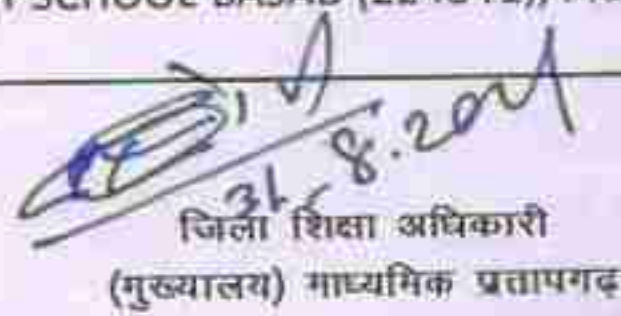 SCHOOL
31-8.2021
जिला शिक्षा अधिकारी
(मुख्यालय) माध्यमिक प्रतापगढ़